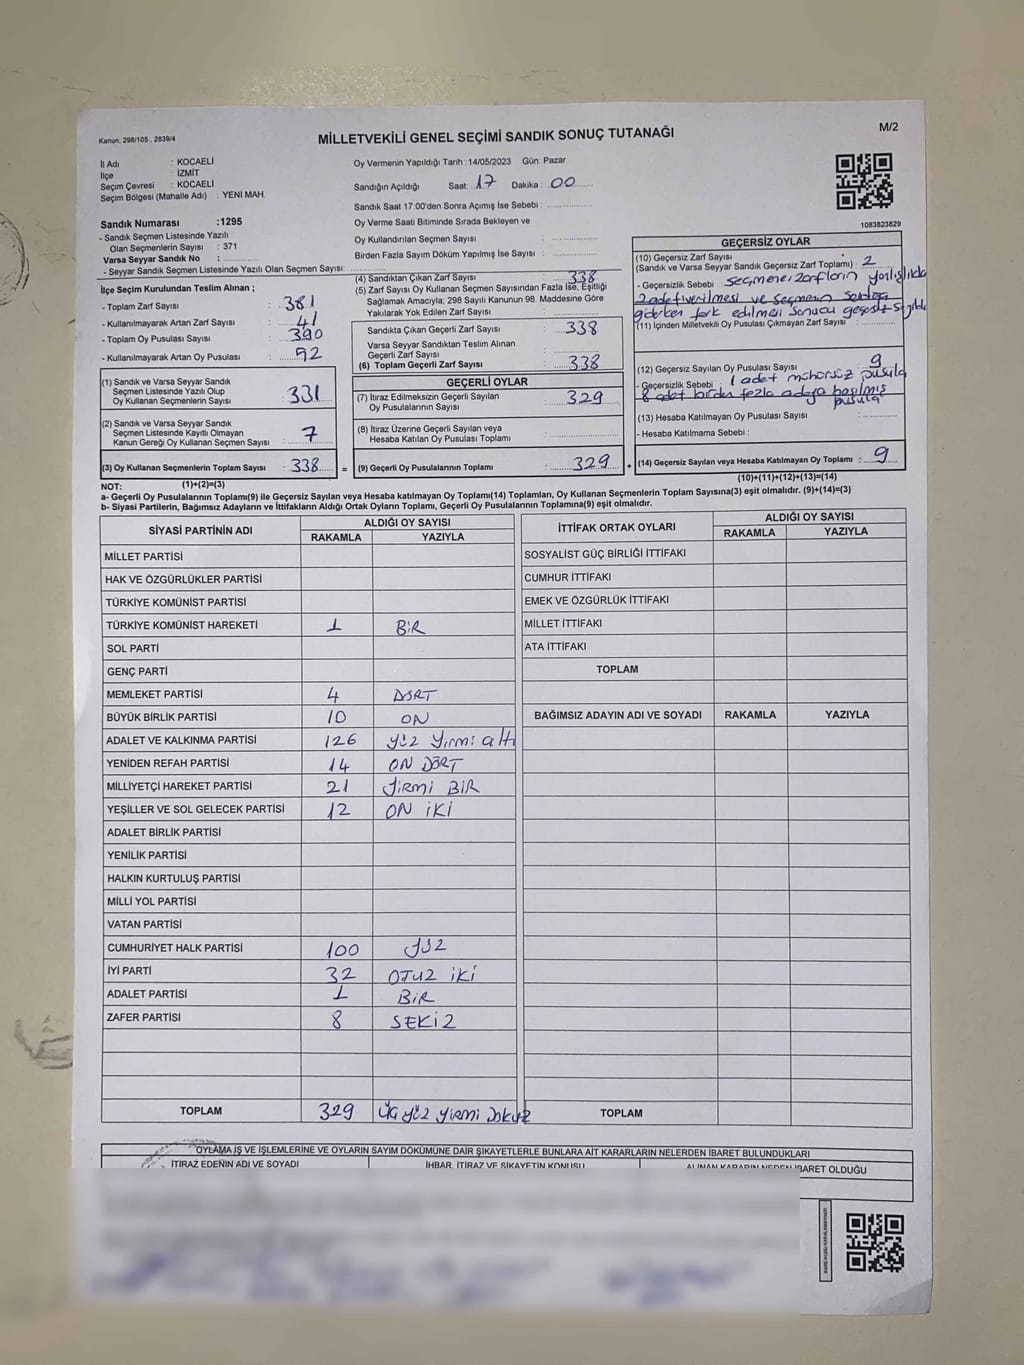 Kanun: 298/105 , 2839/4
MİLLETVEKİLİ GENEL SEÇİMİ SANDIK SONUÇ TUTANAĞI
M/2
İl Adı : KOCAELİ
İlçe : İZMİT
Seçim Çevresi : KOCAELİ
Seçim Bölgesi (Mahalle Adı) : YENİ MAH.
Sandık Numarası :1295
- Sandık Seçmen Listesinde Yazılı
Olan Seçmenlerin Sayısı : 371
Varsa Seyyar Sandık No :
- Seyyar Sandık Seçmen Listesinde Yazılı Olan Seçmen Sayısı:
Oy Vermenin Yapıldığı Tarih :14/05/2023 Gün: Pazar
Sandığın Açıldığı Saat: 17 Dakika: 00
Sandık Saat 17:00'den Sonra Açımış İse Sebebi :
Oy Verme Saati Bitiminde Sırada Bekleyen ve
Oy Kullandırılan Seçmen Sayısı :
Birden Fazla Sayım Döküm Yapılmış İse Sayısı :
1083823829
İlçe Seçim Kurulundan Teslim Alınan ;
- Toplam Zarf Sayısı : 381
- Kullanılmayarak Artan Zarf Sayısı : 41
- Toplam Oy Pusulası Sayısı : 390
- Kullanılmayarak Artan Oy Pusulası : 92
(1) Sandık ve Varsa Seyyar Sandık
Seçmen Listesinde Yazılı Olup
Oy Kullanan Seçmenlerin Sayısı : 331
(2) Sandık ve Varsa Seyyar Sandık
Seçmen Listesinde Kayıtlı Olmayan
Kanun Gereği Oy Kullanan Seçmen Sayısı : 7
(3) Oy Kullanan Seçmenlerin Toplam Sayısı : 338 =
(4) Sandıktan Çıkan Zarf Sayısı : 338
(5) Zarf Sayısı Oy Kullanan Seçmen Sayısından Fazla İse, Eşitliği
Sağlamak Amacıyla; 298 Sayılı Kanunun 98. Maddesine Göre
Yakılarak Yok Edilen Zarf Sayısı :
Sandıkta Çıkan Geçerli Zarf Sayısı : 338
Varsa Seyyar Sandıktan Teslim Alınan
Geçerli Zarf Sayısı :
(6) Toplam Geçerli Zarf Sayısı : 338
GEÇERLİ OYLAR
(7) İtiraz Edilmeksizin Geçerli Sayılan
Oy Pusulalarının Sayısı : 329
(8) İtiraz Üzerine Geçerli Sayılan veya
Hesaba Katılan Oy Pusulası Toplamı :
(9) Geçerli Oy Pusulalarının Toplamı : 329 +
GEÇERSİZ OYLAR
(10) Geçersiz Zarf Sayısı
(Sandık ve Varsa Seyyar Sandık Geçersiz Zarf Toplamı) : 2
- Geçersizlik Sebebi : seçmene zarfların yanlışlıkla
2 adet verilmesi ve seçmenin
giderken fark edilmesi sonucu geçersiz sayıldı
(11) İçinden Milletvekili Oy Pusulası Çıkmayan Zarf Sayısı :
(12) Geçersiz Sayılan Oy Pusulası Sayısı : 9
- Geçersizlik Sebebi : 1 adet mühürsüz pusula
8 adet birden fazla adaya basılmış
pusula
(13) Hesaba Katılmayan Oy Pusulası Sayısı :
- Hesaba Katılmama Sebebi :
(14) Geçersiz Sayılan veya Hesaba Katılmayan Oy Toplamı : 9
NOT: (1)+(2)=(3)
(10)+(11)+(12)+(13)=(14)
a- Geçerli Oy Pusulalarının Toplamı(9) ile Geçersiz Sayılan veya Hesaba katılmayan Oy Toplamı(14) Toplamları, Oy Kullanan Seçmenlerin Toplam Sayısına(3) eşit olmalıdır. (9)+(14)=(3)
b- Siyasi Partilerin, Bağımsız Adayların ve İttifakların Aldığı Ortak Oyların Toplamı, Geçerli Oy Pusulalarının Toplamına(9) eşit olmalıdır.
SİYASİ PARTİNİN ADI ALDIĞI OY SAYISI
RAKAMLA YAZIYLA
MİLLET PARTİSİ
HAK VE ÖZGÜRLÜKLER PARTİSİ
TÜRKİYE KOMÜNİST PARTİSİ
TÜRKİYE KOMÜNİST HAREKETİ 1 BİR
SOL PARTİ
GENÇ PARTİ
MEMLEKET PARTİSİ 4 DÖRT
BÜYÜK BİRLİK PARTİSİ 10 ON
ADALET VE KALKINMA PARTİSİ 126 Yüz Yirmi altı
YENİDEN REFAH PARTİSİ 14 ON DÖRT
MİLLİYETÇİ HAREKET PARTİSİ 21 Yirmi BİR
YEŞİLLER VE SOL GELECEK PARTİSİ 12 ON İKİ
ADALET BİRLİK PARTİSİ
YENİLİK PARTİSİ
HALKIN KURTULUŞ PARTİSİ
MİLLİ YOL PARTİSİ
VATAN PARTİSİ
CUMHURİYET HALK PARTİSİ 100 YÜZ
İYİ PARTİ 32 OTUZ İKİ
ADALET PARTİSİ 1 BİR
ZAFER PARTİSİ 8 SEKİZ
TOPLAM 329 Üç yüz yirmi Dokuz
İTTİFAK ORTAK OYLARI ALDIĞI OY SAYISI
RAKAMLA YAZIYLA
SOSYALİST GÜÇ BİRLİĞİ İTTİFAKI
CUMHUR İTTİFAKI
EMEK VE ÖZGÜRLÜK İTTİFAKI
MİLLET İTTİFAKI
ATA İTTİFAKI
TOPLAM
BAĞIMSIZ ADAYIN ADI VE SOYADI RAKAMLA YAZIYLA
TOPLAM
OYLAMA İŞ VE İŞLEMLERİNE VE OYLARIN SAYIM DÖKÜMÜNE DAİR ŞİKAYETLERLE BUNLARA AİT KARARLARIN NELERDEN İBARET BULUNDUKLARI
İTİRAZ EDENİN ADI VE SOYADI İHBAR, İTİRAZ VE ŞİKAYETİN KONUSU ALINAN KARARIN NEDEN İBARET OLDUĞU